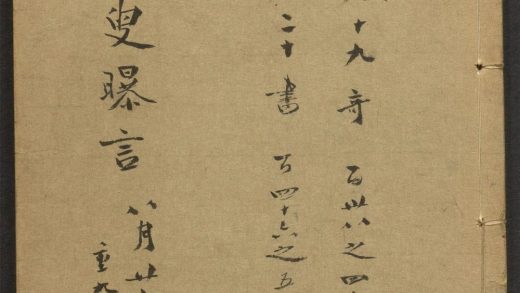 十九 奇 百卅八之四
二十 書 百四十六之五
叟曝言 八月廿
重